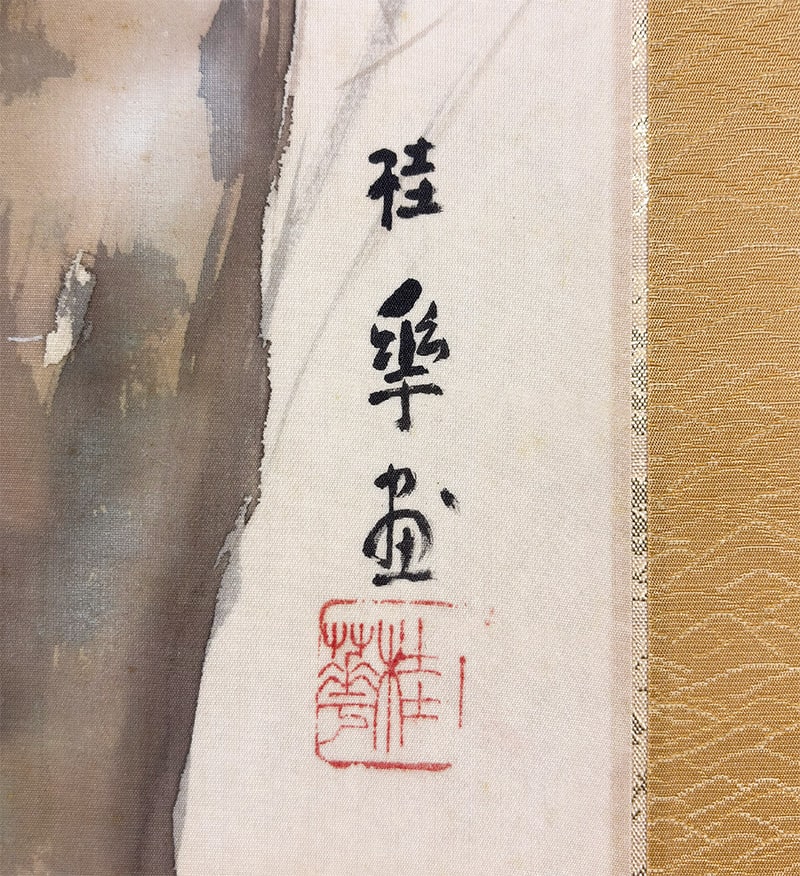 桂華画
桂華